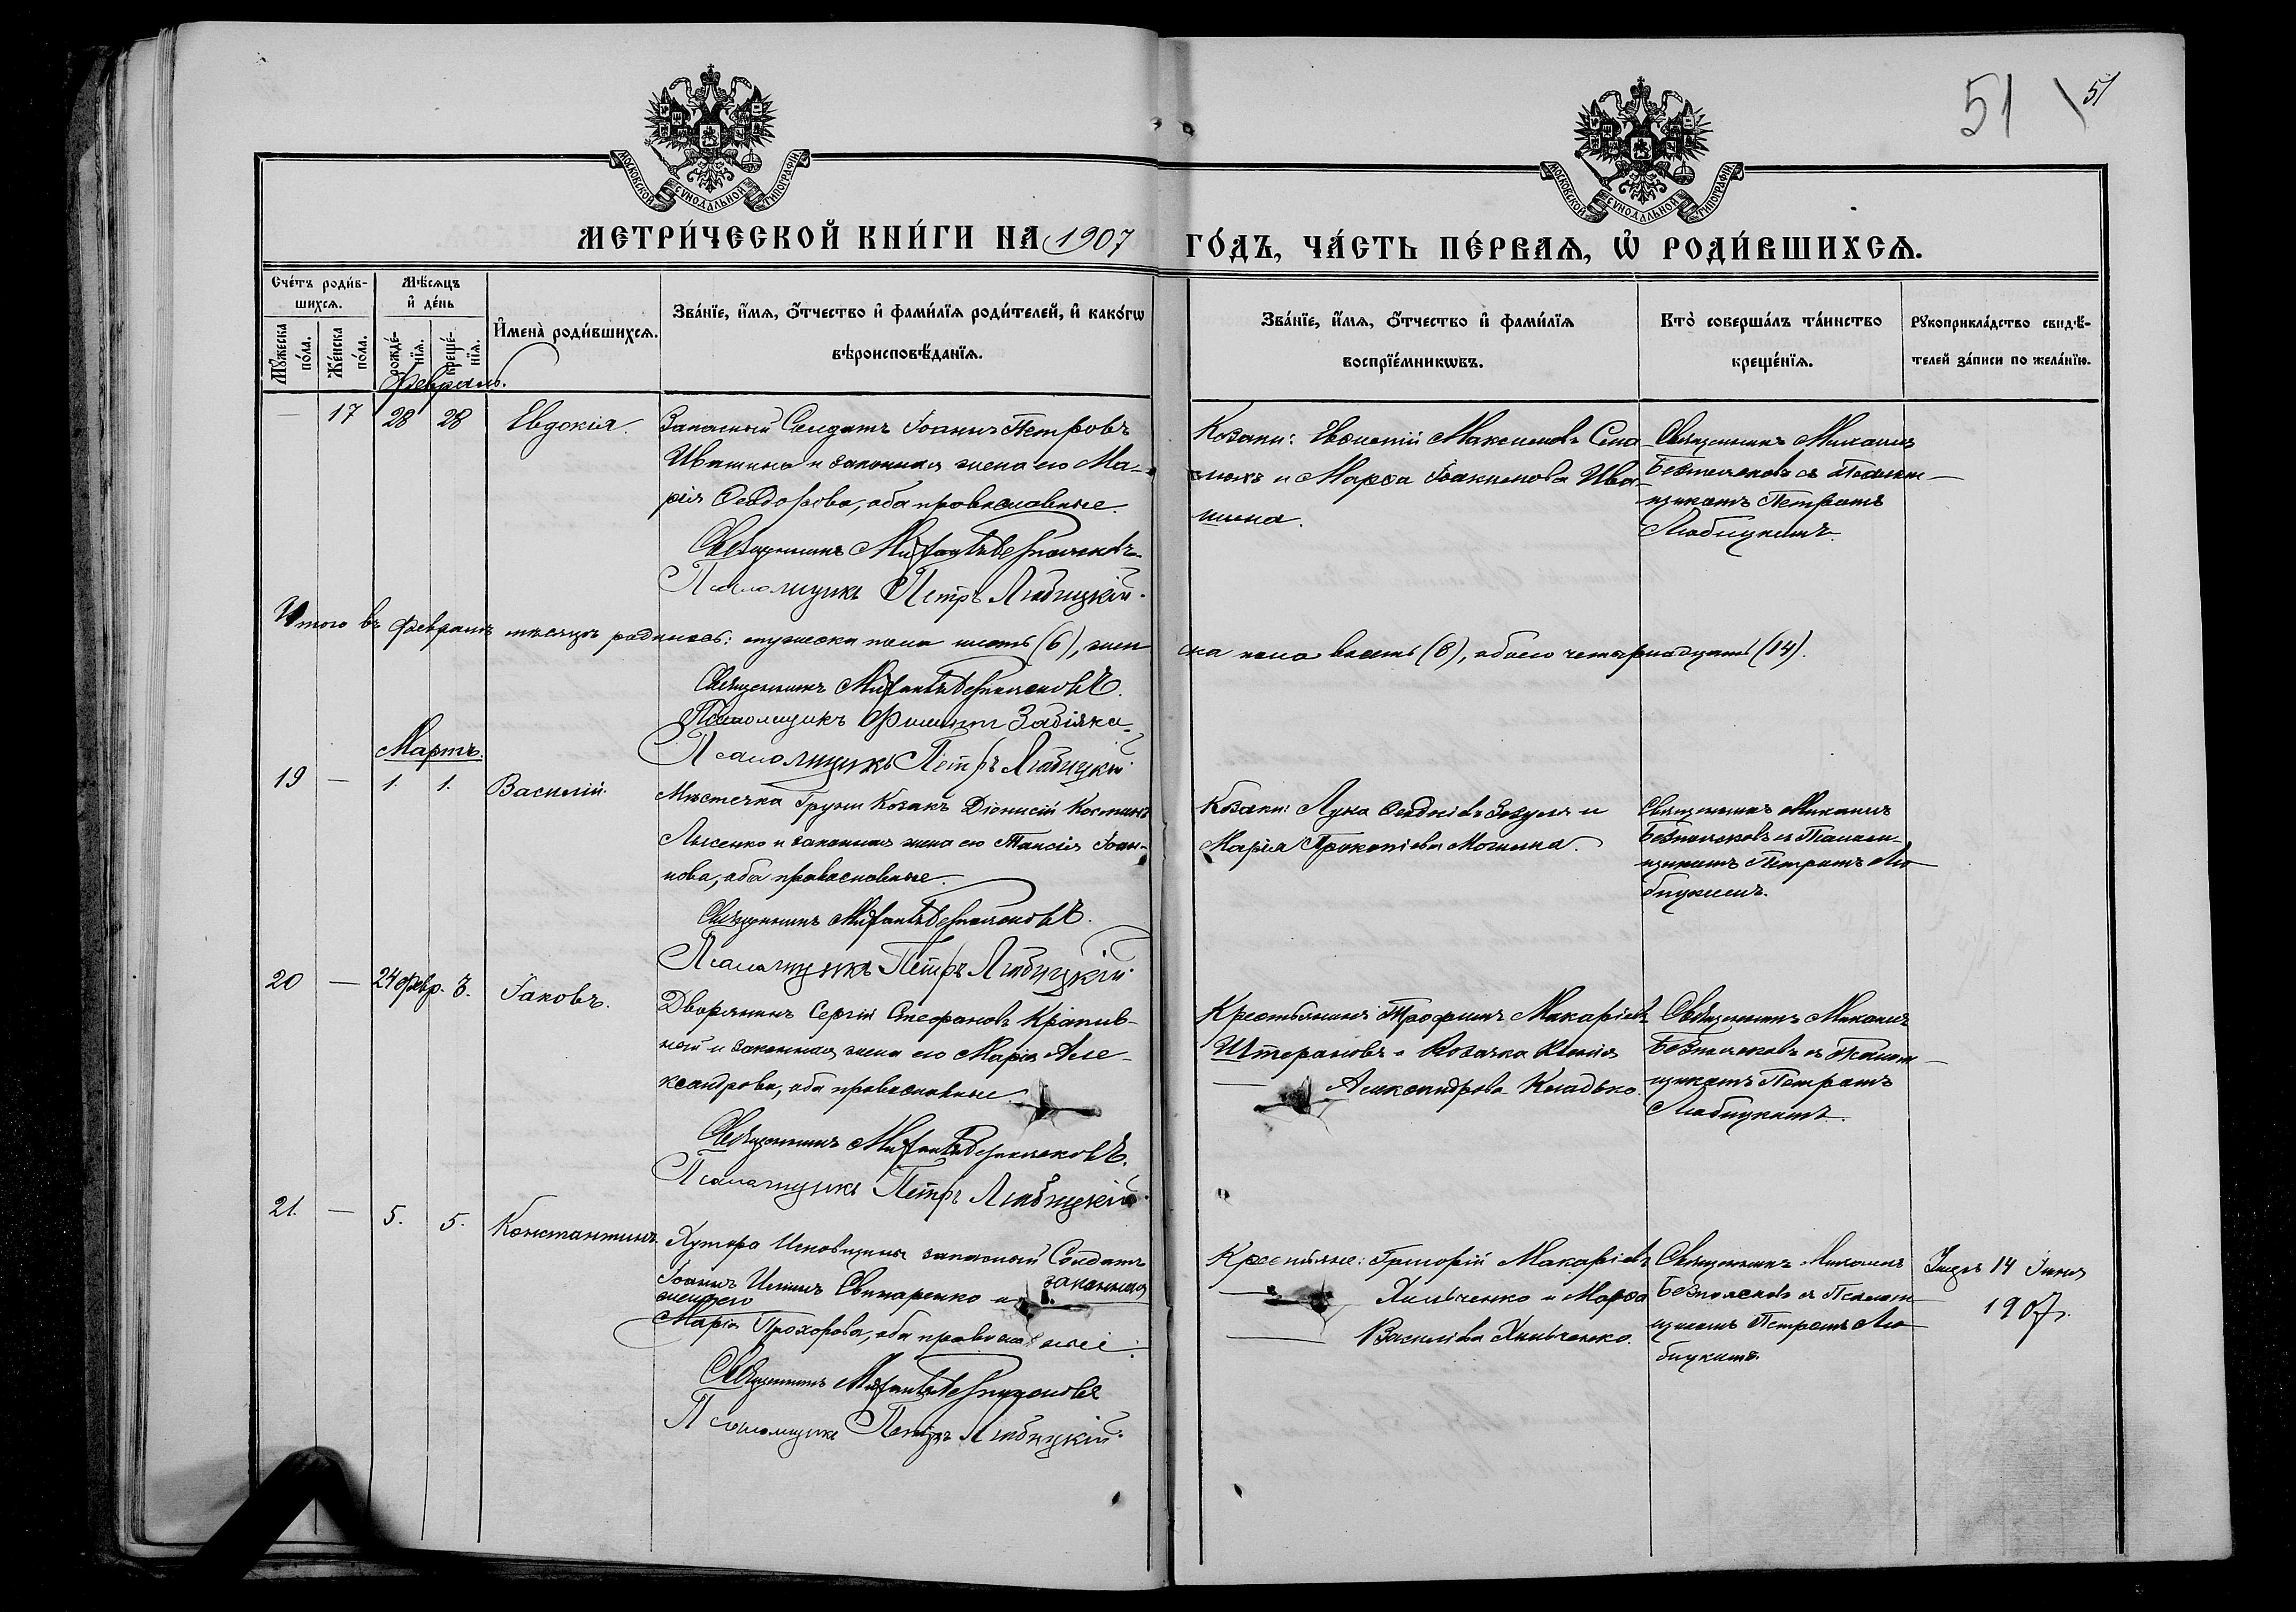 51 51
МОСКОВСКОЙ СУНОДАЛЬНОЙ ТИПОГРАФІИ.
МОСКОВСКОЙ СУНОДАЛЬНОЙ ТИПОГРАФІИ.
МЕТРИ́ЧЕСКОЙ КНИ́ГИ НА 1907 ГО́ДЪ, ЧА́СТЬ ПЕ́РВАѦ, Ѡ҆ РОДИ́ВШИХСѦ.
Сче́тъ роди́в-
шихсѧ.
Мѹ́жеска по́ла.
Же́нска по́ла.
Мѣ́сѧцъ
и҆ де́нь
рожде́-нїѧ.
креще́-нїѧ.
И҆мена̀ роди́вшихсѧ.
Зва́нїе, и҆́мѧ, ѻ҆́тчество и҆ фами́лїѧ роди́телей, и҆ како́гѡ
вѣроисповѣ́данїѧ.
Зва́нїе, и҆́мѧ, ѻ҆́тчество и҆ фами́лїѧ
воспрїе́мникѡвъ.
Кто̀ соверша́лъ та́инство
креще́нїѧ.
Рѹкоприкла́дство свидѣ́-
телей за́писи по жела́нїю.
Февраль.
— 17 28 28 Евдокія.
Запасный Солдатъ Іоаннъ Петровъ
Ивашина и законная жена его Ма-
рія Ѳеодорова, оба православные.
Священникъ Михаилъ Безпоясковъ
Псаломщикъ Петръ Любицкій.
Козаки: Евѳимій Максимовъ
и Марѳа Іоакимова Ива-
шина.
Священникъ Михаилъ
Безпоясковъ съ Псалом-
щикомъ Петромъ
Любицкимъ.
Итого въ Февралѣ мѣсяцѣ родилось: мужеска пола шесть (6), жен-
ска пола восемь (8), обоего четырнадцать (14).
Священникъ Михаилъ Безпоясковъ.
Псаломщикъ Филиппъ Забіяка.
Псаломщикъ Петръ Любицкій
Мартъ.
19 — 1. 1. Василій.
Мѣстечка Груни Козакъ Діонисій
Лысенко и законная жена его Таисія Іоан-
нова, оба православные.
Священникъ Михаилъ Безпоясковъ.
Псаломщикъ Петръ Любицкій.
Козаки: Лука и
Марія Прокопіева Могилина.
Священникъ Михаилъ
Безпоясковъ съ Псалом-
щикомъ Петромъ Лю-
бицкимъ.
20 — 24 февр. 3. Іаковъ.
Дворянинъ Сергій Стефановъ Крапив-
ной и законная жена его Марія Але-
ксандрова, оба православные.
Священникъ Михаилъ Безпоясковъ.
Псаломщикъ Петръ Любицкій.
Крестьянинъ Трофимъ Макаріевъ
Штерановъ и Козачка Ксенія
Александрова Кладько.
Священникъ Михаилъ
Безпоясковъ съ Псалом-
щикомъ Петромъ
Любицкимъ.
21. — 5. 5. Константинъ.
Хутора запасный Солдатъ
Іоаннъ Свинаренко и законная
жена его
Марія Прохорова, оба православные.
Священникъ Михаилъ Безпоясковъ
Псаломщикъ Петръ Любицкій.
Крестьяне: Григорій Макаріевъ
Хильченко и Марѳа
Василіева Хильченко.
Священникъ Михаилъ
Безпоясковъ съ Псалом-
щикомъ Петромъ Лю-
бицкимъ.
14 Іюня
1907.